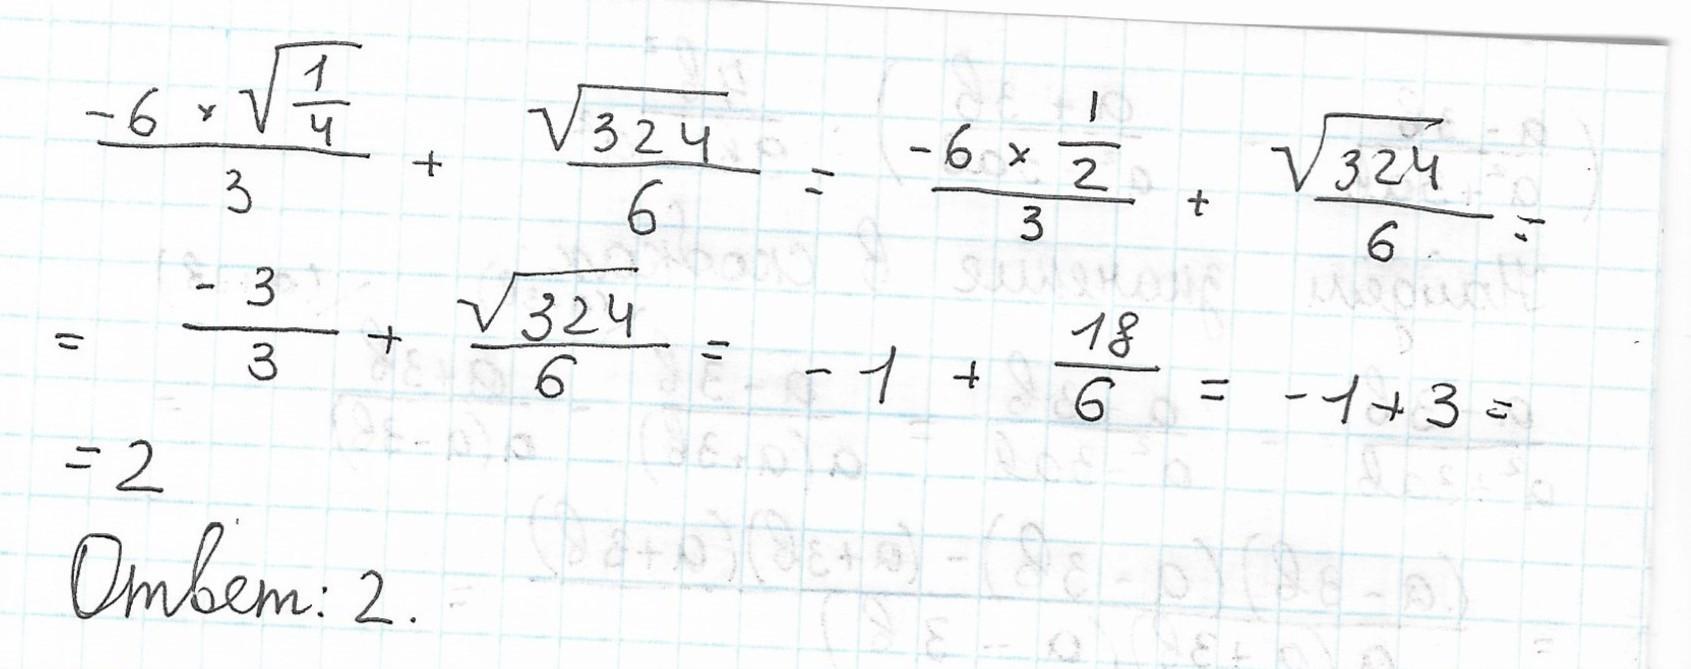 (-6 × √(1/4))/3 + √324/6 = (-6 × 1/2)/3 + √324/6 =
= -3/3 + √324/6 = -1 + 18/6 = -1 + 3 =
= 2
Ответ: 2.